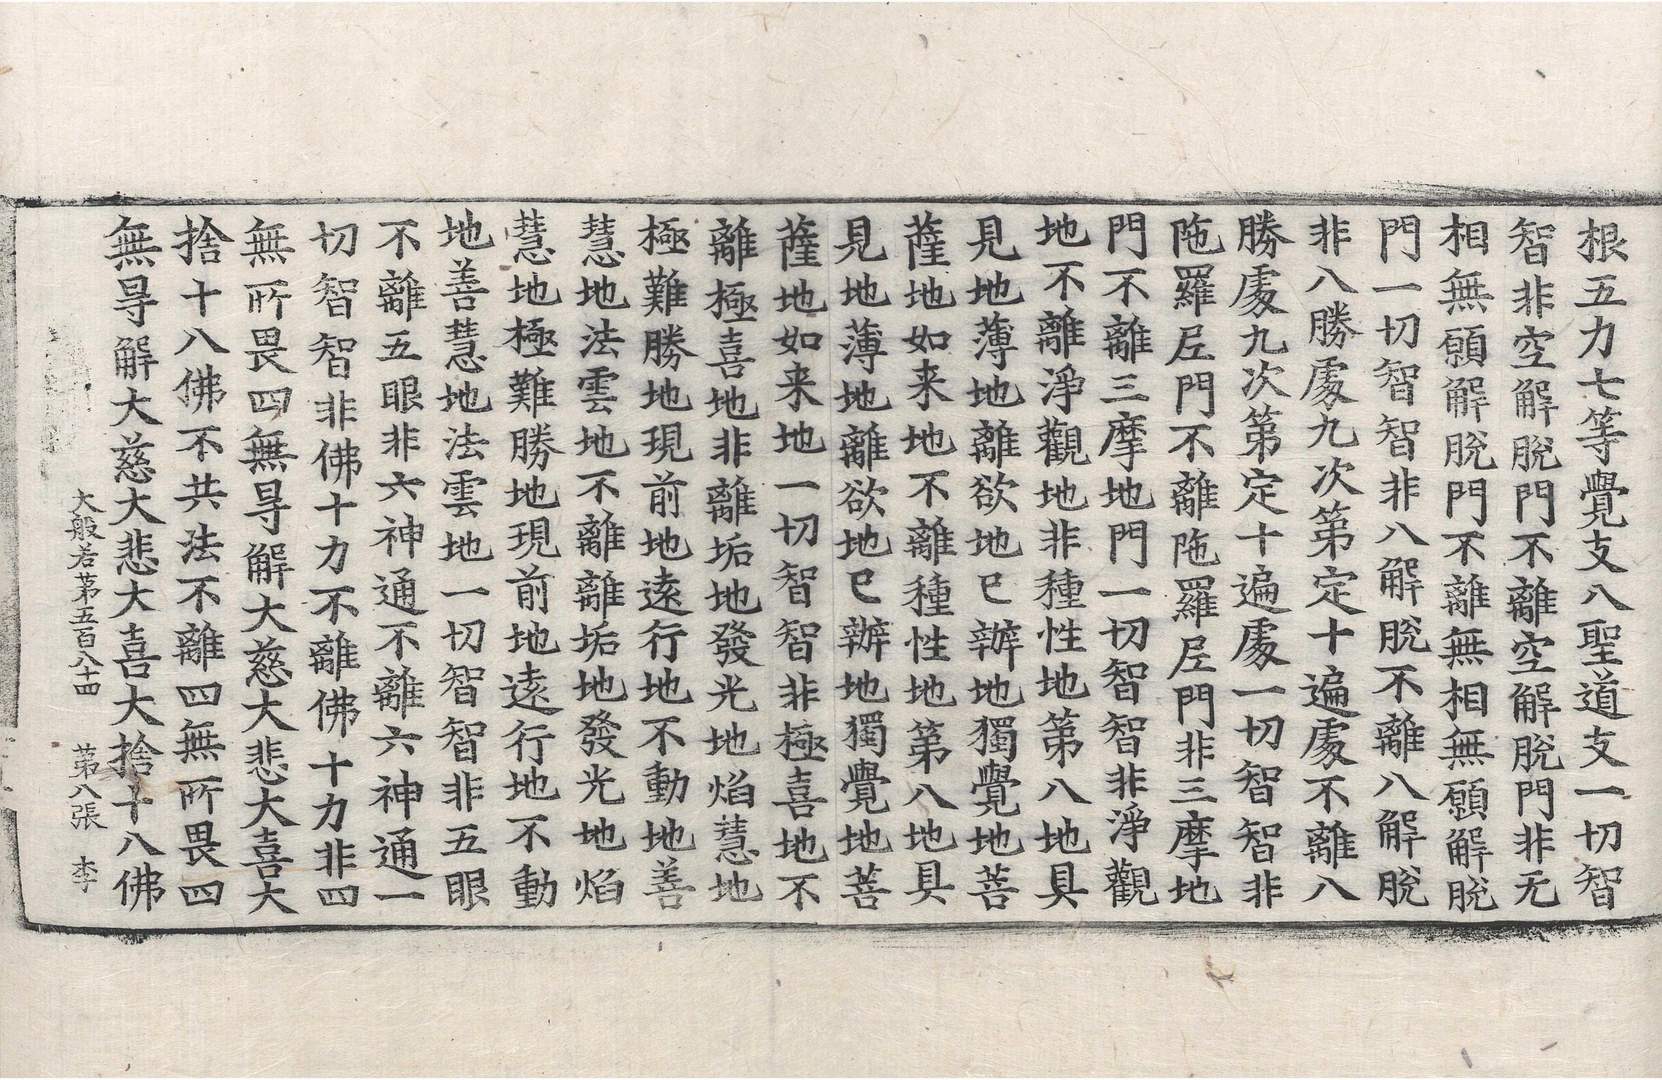 根五力七等覺支八聖道支一切智
智非空解脫門不離空解脫門非无
相無願解脫門不離無相無願解脫
門一切智智非八解脫不離八解脫
非八勝處九次第定十遍處不離八
勝處九次第定十遍處一切智智非
陁羅尼門不離陁羅尼門非三摩地
門不離三摩地門一切智智非淨觀
地不離淨觀地非種性地第八地具
見地薄地離欲地巳辦地獨覺地菩
薩地如来地不離種性地第八地具
見地薄地離欲地巳辦地獨覺地菩
薩地如来地一切智智非極喜地不
離極喜地非離垢地發光地焰慧地
極難勝地現前地遠行地不動地善
慧地法雲地不離離垢地發光地焰
慧地極難勝地現前地遠行地不動
地善慧地法雲地一切智智非五眼
不離五眼非六神通不離六神通一
切智智非佛十力不離佛十力非四
無所畏四無㝵解大慈大悲大喜大
捨十八佛不共法不離四無所畏四
無㝵解大慈大悲大喜大捨十八佛
大般若第五百八十四 第八張 李